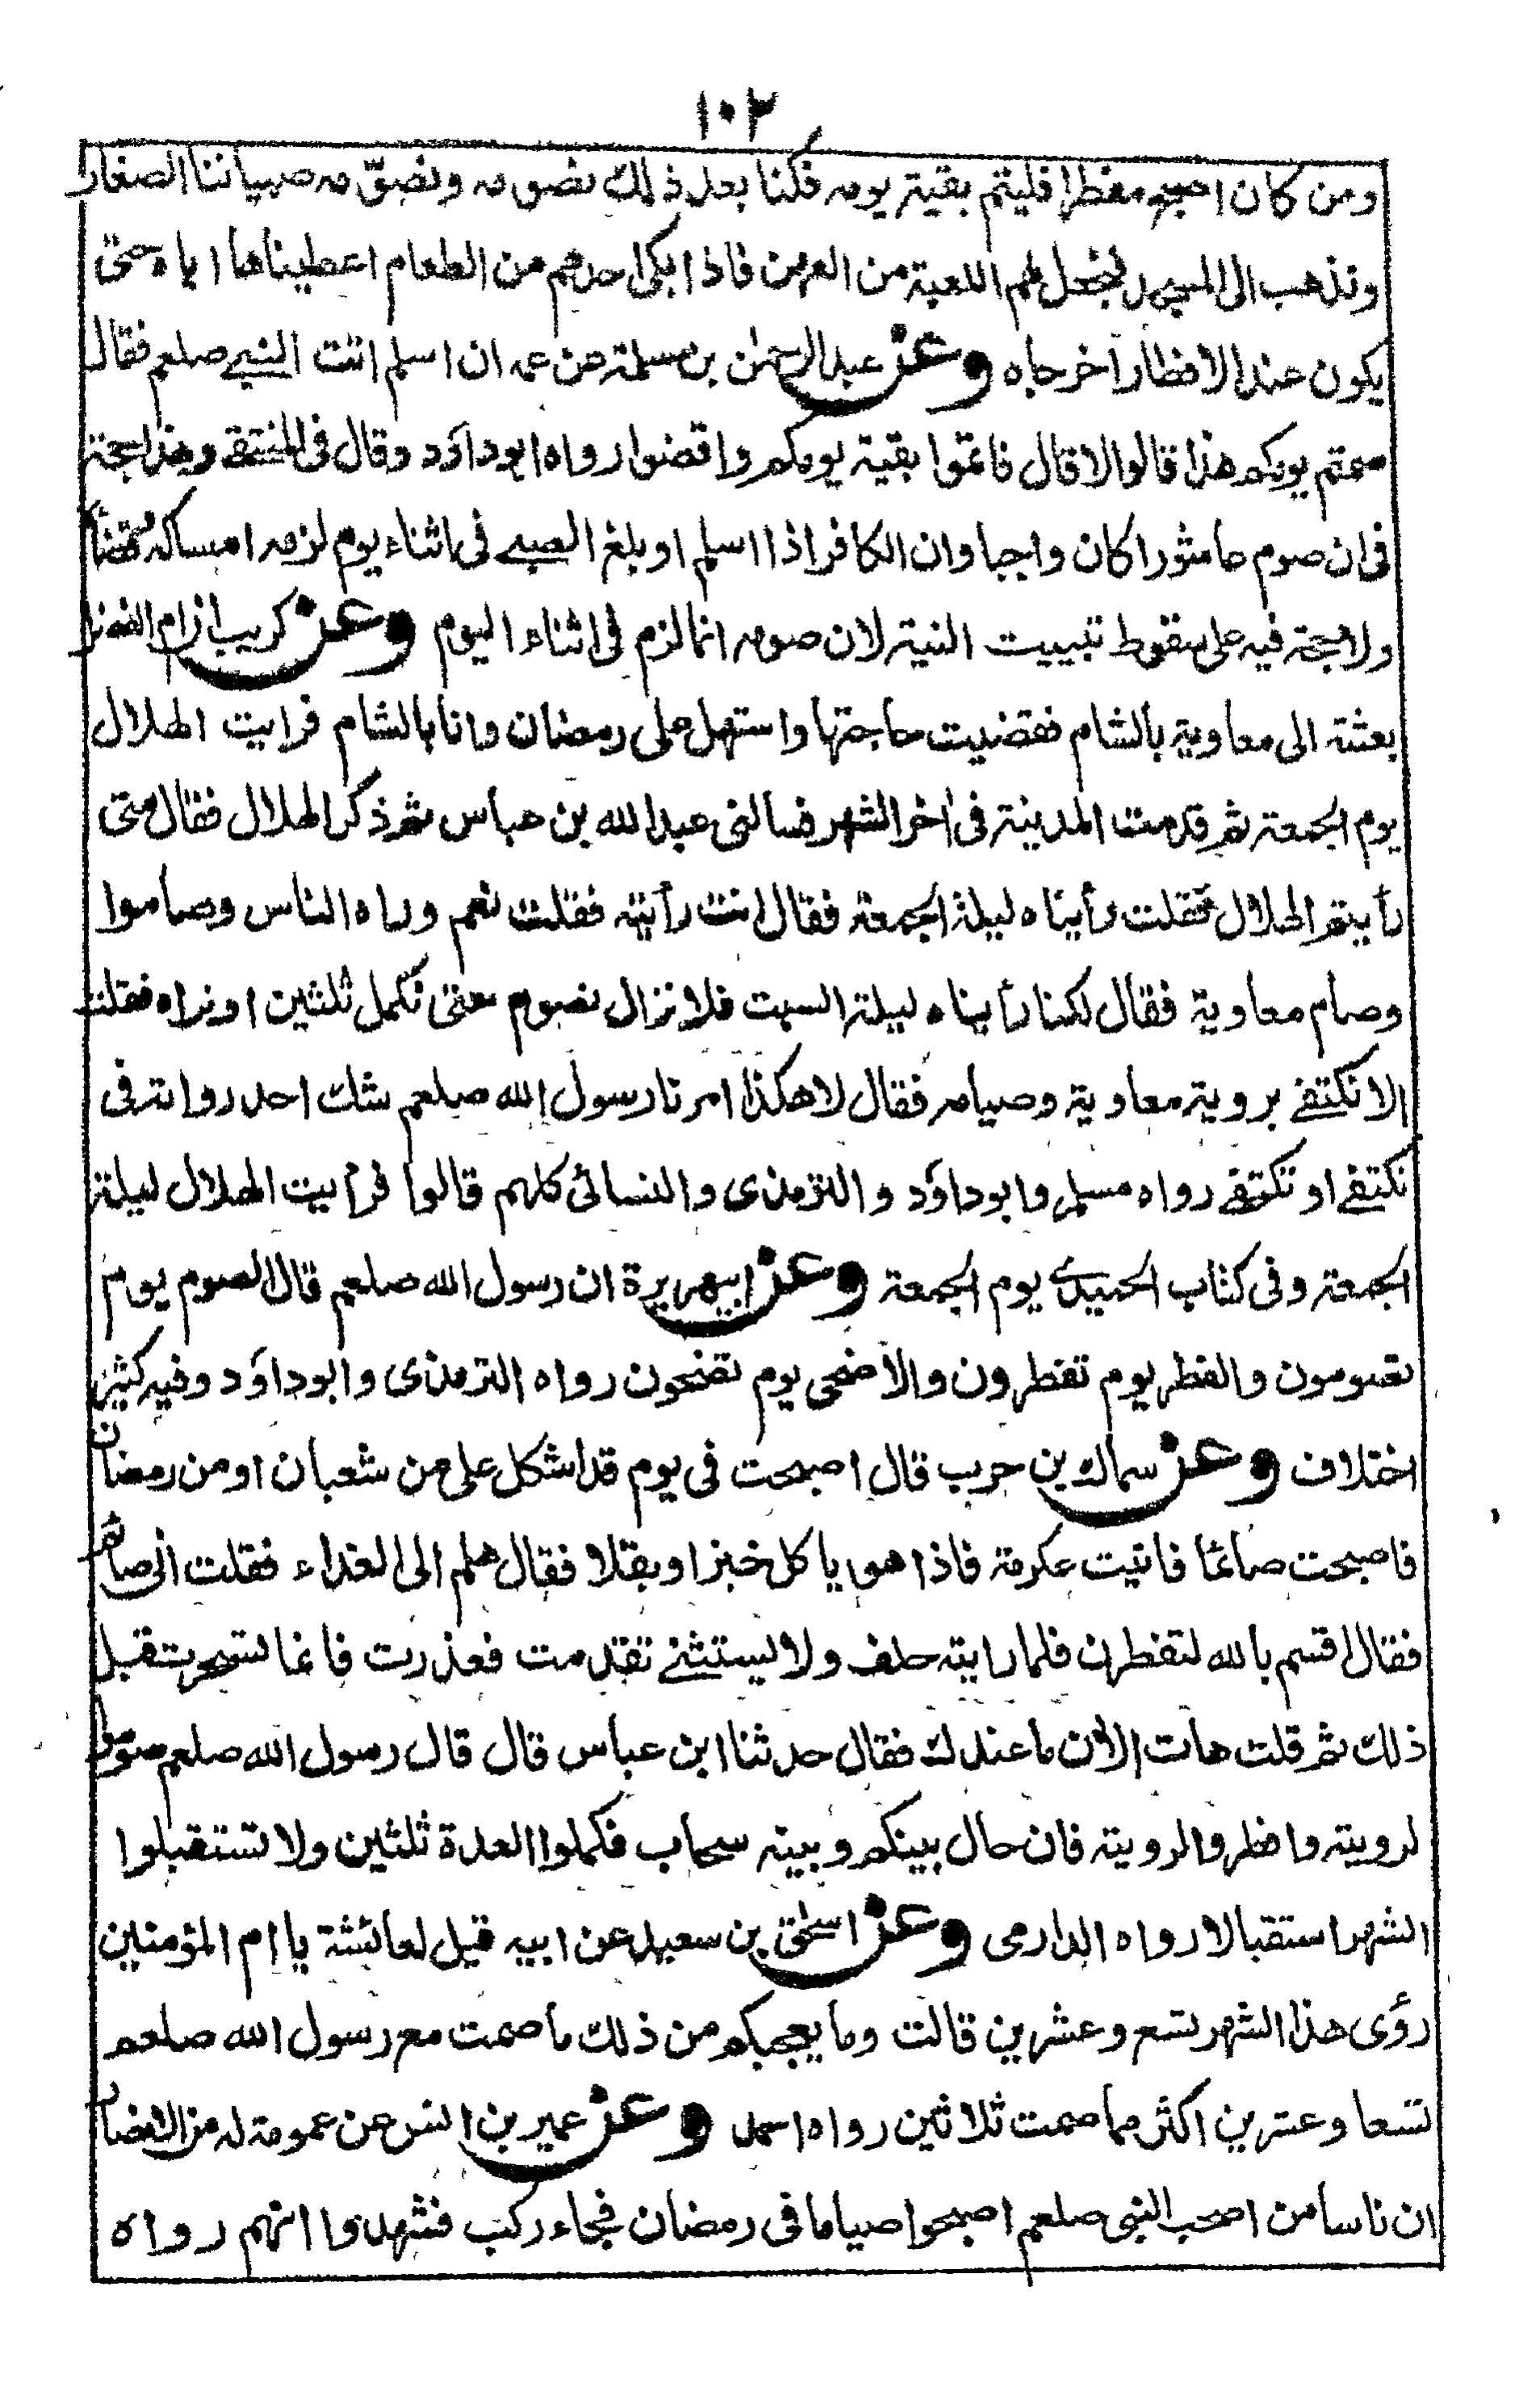 ١٠٢
ومن كان اصبح مفطرا فليتم بقية يومه فكنا بعد ذلك نصومه ونصوّمه صبياننا الصغار
ونذهب الى المسجد فنجعل لهم اللعبة من العهن فاذا بكى احدهم من الطعام اعطيناها اياه حتى
يكون عند الافطار اخرجاه وعن عبد الرحمن بن مسلمة عن عمه ان اسلم اتت النبي صلعم فقال
صمتم يومكم هذا قالوا لا قال فاتموا بقية يومكم واقضوا رواه ابوداود وقال فى المنتقى وهذا حجة
فى ان صوم عاشورا كان واجبا وان الكافر اذا اسلم او بلغ الصبي فى اثناء يوم لزمه امساكه وقضاؤه
ولا حجة فيه على سقوط تبييت النية لان صومه انما لزم فى اثناء اليوم وعن كريب ان ام الفضل
بعثته الى معاوية بالشام فقضيت حاجتها واستهل على رمضان وانا بالشام فرايت الهلال
يوم الجمعة ثم قدمت المدينة فى اخر الشهر فسالنى عبد الله بن عباس ثم ذكر الهلال فقال متى
رأيتم الهلال فقلت رأيناه ليلة الجمعة فقال انت رأيته فقلت نعم وراه الناس وصاموا
وصام معاوية فقال لكنا رأيناه ليلة السبت فلا نزال نصوم حتى نكمل ثلثين او نراه فقلت
الا نكتفى بروية معاوية وصيامه فقال لا هكذا امرنا رسول الله صلعم شك احد رواته فى
نكتفى او تكتفى رواه مسلم وابوداود والترمذى والنسائى كلهم قالوا فرأيت الهلال ليلة
الجمعة وفى كتاب الحميدى يوم الجمعة وعن ابيهريرة ان رسول الله صلعم قال الصوم يوم
تصومون والفطر يوم تفطرون والاضحى يوم تضحون رواه الترمذى وابوداود وفيه كثير
اختلاف وعن سماك بن حرب قال اصبحت فى يوم قد اشكل على من شعبان او من رمضان
فاصبحت صائما فاتيت عكرمة فاذا هو ياكل خبزا وبقلا فقال هلم الى الغداء فقلت انى صائم
فقال اقسم بالله لتفطرن فلما رايته حلف ولا يستثنى تقدمت فعذرت فانما تسحرت قبل
ذلك ثم قلت هات الان ما عندك فقال حدثنا ابن عباس قال قال رسول الله صلعم صوموا
لرويته وافطروا لرويته فان حال بينكم وبينه سحاب فكملوا العدة ثلثين ولا تستقبلوا
الشهر استقبالا رواه الدارمى وعن اسحق بن سعيد عن ابيه قيل لعائشة يا ام المؤمنين
رؤى هذا الشهر تسع وعشرين قالت وما يعجبكم من ذلك ما صمت مع رسول الله صلعم
تسعا وعشرين اكثر مما صمت ثلاثين رواه احمد وعن عمير بن انس عن عمومة له من الانصار
ان ناسا من اصحب النبى صلعم اصبحوا صياما فى رمضان فجاء ركب فشهدوا انهم رواه